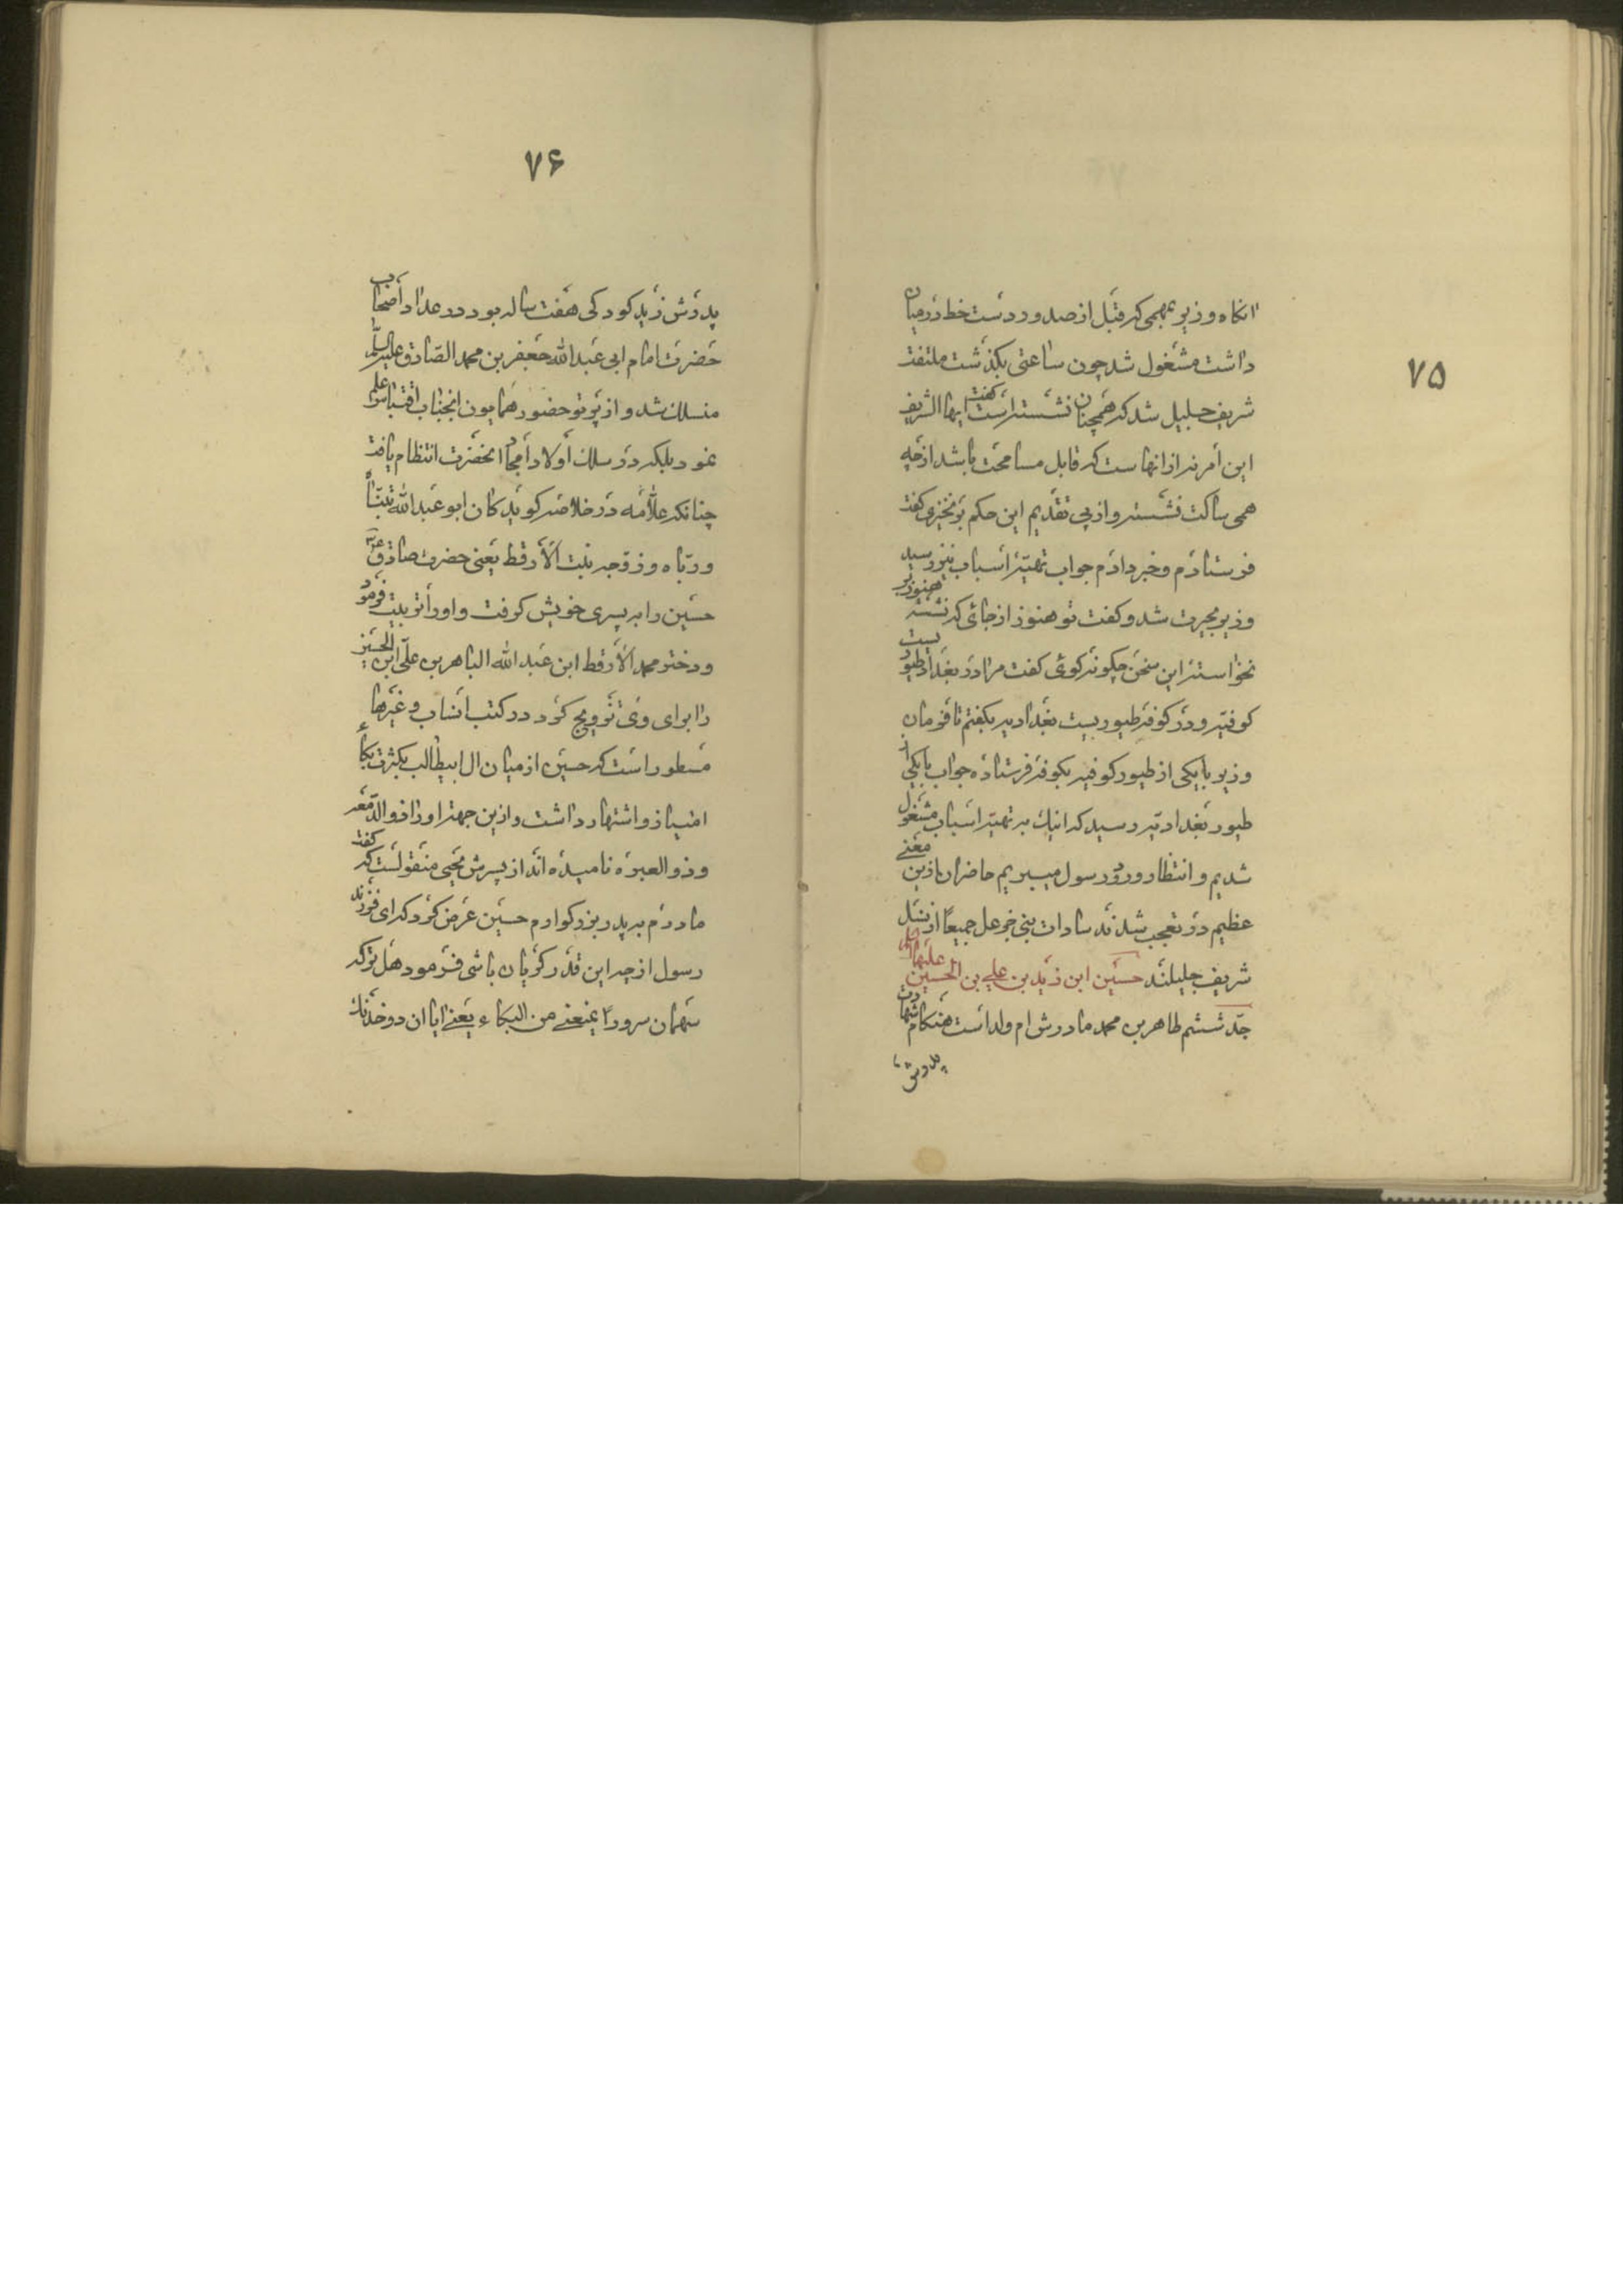 ۷۵
انکاه وزیر بمهمی که قبل از صدور دست خط در میان
داشت مشغول شد چون ساعتی بکذشت ملتفت
شریف جلیل شد که همچنان نشسته است کفت ایها الشریف
این امر نه از انهاست که قابل مسامحت باشد از چه
همی ساکت نشسته و از پی تقدیم این حکم بر نخیزی کفت
فرستادم و خبر دادم جواب تهیّه اسباب نیز رسید
وزیر بحیرت شد و کفت تو هنوز از جای که نشسته هنوز بر
نخواسته این سخن چکونه کوئی کفت مرا در بغداد طیور
کوفیّه و در کوفه طیوریست بغدادیه بکفتم تا فرمان
وزیر با یکی از طیور کوفیه بکوفه فرستاده جواب با یکی از
طیور بغدادیّه رسید که اینک به تهیّه اسباب مشغول
شدیم و انتظار ورود رسول میبریم حاضران ازین معنے
عظیم در تعجب شدند سادات بنی خزعل جمیعاً از نسل
شریف جلیلند حسین ابن زید بن علے بن الحسین علیهما السلام
جدّ ششم طاهر بن محمد مادرش ام ولد است هنکام شهادت
پدرش
۷۶
پدرش زید کودکی هفت ساله بود در عداد أصحاب
حضرت امام ابی عبدالله جعفر بن محمد الصّادق علیه السلّم
منسلک شد و از پرتو حضور همایون انجناب اقتباس علم
نمود بلکه در سلک أولاد أمجاد انحضرت انتظام یافت
چنانکه علاّمه در خلاصه کوید کان ابو عبدالله تبنّاه
و ربّاه و زوّجه بنت الأرقط یعنی حضرت صادق ع
حسین را به پسری خویش کرفت و او را تربیت فرمود
و دختر محمد الأرقط ابن عبدالله الباهر بن علیّ ابن الحسین
را برای وی تزویج کرد در کتب انساب و غیرها
مسطور است که حسین از میان ال ابیطالب بکثرت بکاء
امتیاز و اشتهار داشت و ازین جهة او را ذو الدّمعه
و ذو العبره نامیده اند از پسرش یحیی منقولست که کفت
مادرم به پدر بزرکوارم حسین عرض کرد که ای فرزند
رسول از چه این قدر کریان باشی فرمود هل ترک
سهمان سروراً یمنعنے من البکاء یعنے ایا ان دو خدنک